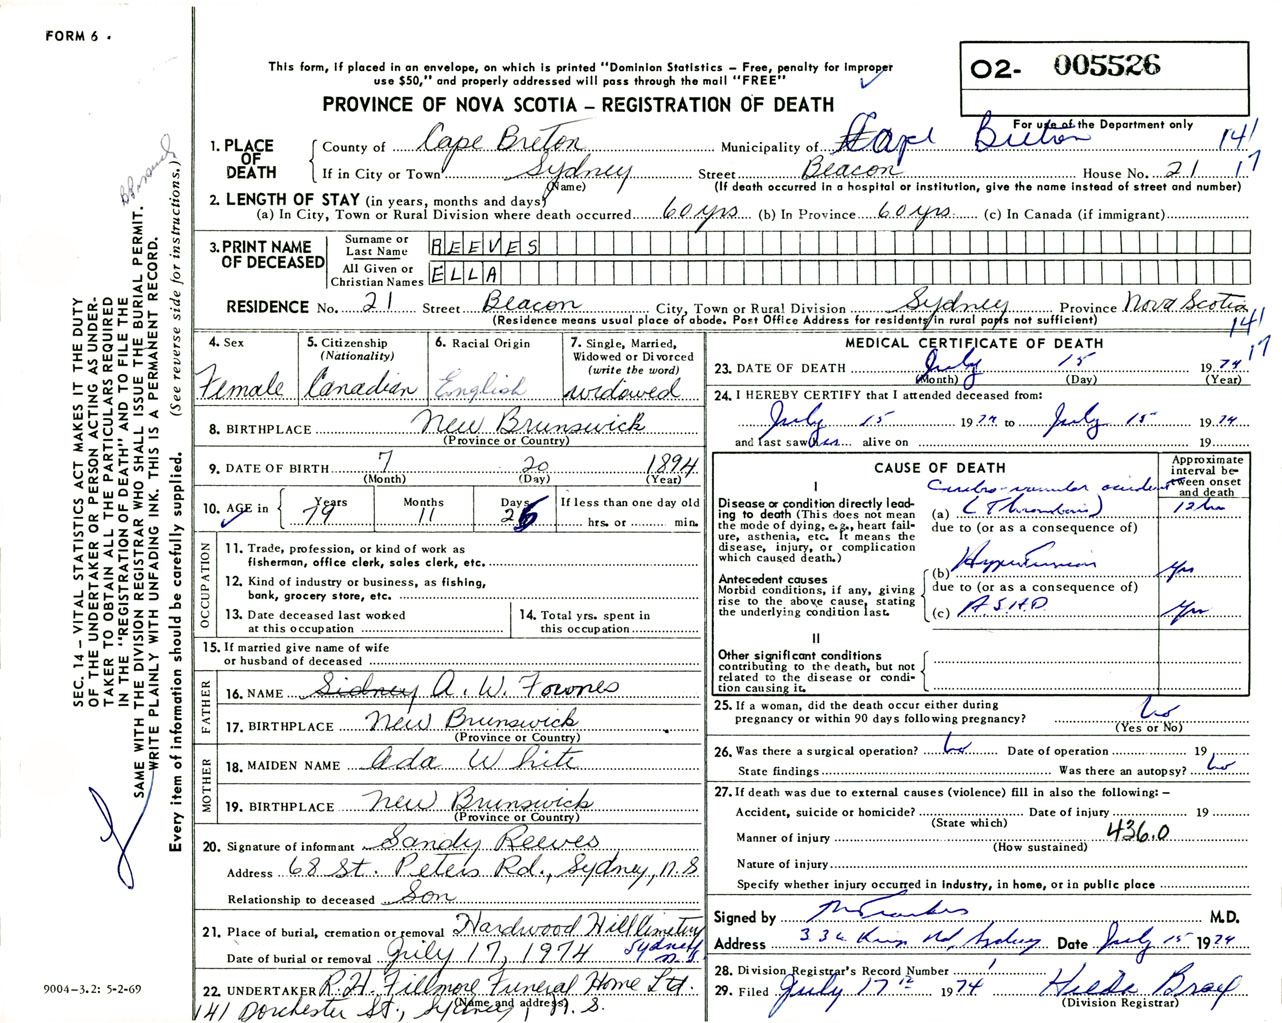 FORM 6 .
This form, if placed in an envelope, on which is printed "Dominion Statistics – Free, penalty for improper
use $50," and properly addressed will pass through the mail "FREE"
PROVINCE OF NOVA SCOTIA – REGISTRATION OF DEATH
O2- 005526
For use of the Department only
1. PLACE OF DEATH
County of Cape Breton Municipality of Cape Breton 141
If in City or Town Sydney Street Beacon House No. 21 17
(Name) (If death occurred in a hospital or institution, give the name instead of street and number)
2. LENGTH OF STAY (in years, months and days)
(a) In City, Town or Rural Division where death occurred 60 yrs (b) In Province 60 yrs (c) In Canada (if immigrant)
3. PRINT NAME OF DECEASED
Surname or Last Name REEVES
All Given or Christian Names ELLA
RESIDENCE No. 21 Street Beacon City, Town or Rural Division Sydney Province Nova Scotia
(Residence means usual place of abode. Post Office Address for residents in rural parts not sufficient) 141
17
4. Sex 5. Citizenship (Nationality) 6. Racial Origin 7. Single, Married, Widowed or Divorced (write the word)
Female Canadian English widowed
8. BIRTHPLACE New Brunswick
(Province or Country)
9. DATE OF BIRTH 7 20 1894
(Month) (Day) (Year)
10. AGE in Years Months Days If less than one day old
79 11 25 hrs. or min.
OCCUPATION
11. Trade, profession, or kind of work as
fisherman, office clerk, sales clerk, etc.
12. Kind of industry or business, as fishing,
bank, grocery store, etc.
13. Date deceased last worked
at this occupation
14. Total yrs. spent in
this occupation
15. If married give name of wife
or husband of deceased
FATHER
16. NAME Sidney A. W. Fownes
17. BIRTHPLACE New Brunswick
(Province or Country)
MOTHER
18. MAIDEN NAME Ada White
19. BIRTHPLACE New Brunswick
(Province or Country)
20. Signature of informant Sandy Reeves
Address 68 St. Peters Rd., Sydney, N.S
Relationship to deceased Son
21. Place of burial, cremation or removal Hardwood Hill Cemetery
Sydney N.S.
Date of burial or removal July 17, 1974
22. UNDERTAKER R.H. Fillmore Funeral Home Ltd.
(Name and address)
141 Dorchester St., Sydney, N. S.
MEDICAL CERTIFICATE OF DEATH
23. DATE OF DEATH July 15 1974
(Month) (Day) (Year)
24. I HEREBY CERTIFY that I attended deceased from:
July 15 1974 to July 15 1974
and last saw her alive on 19
CAUSE OF DEATH
Approximate interval between onset and death
I
Disease or condition directly leading to death (This does not mean the mode of dying, e.g., heart failure, asthenia, etc. It means the disease, injury, or complication which caused death.)
Cerebro-vascular accident
(a) (Thrombosis) 12 hrs
due to (or as a consequence of)
Antecedent causes
Morbid conditions, if any, giving rise to the above cause, stating the underlying condition last.
(b) Hypertension yrs
due to (or as a consequence of)
(c) A.S.H.D. yrs
II
Other significant conditions
contributing to the death, but not related to the disease or condition causing it.
25. If a woman, did the death occur either during
pregnancy or within 90 days following pregnancy? No
(Yes or No)
26. Was there a surgical operation? No Date of operation 19
State findings Was there an autopsy? No
27. If death was due to external causes (violence) fill in also the following: –
Accident, suicide or homicide? Date of injury 19
(State which)
Manner of injury 436.0
(How sustained)
Nature of injury
Specify whether injury occurred in industry, in home, or in public place
Signed by M.D.
Address 336 Kings Rd, Sydney Date July 15 1974
28. Division Registrar's Record Number 1
29. Filed July 17th 1974 Hilda Bray
(Division Registrar)
SEC. 14 – VITAL STATISTICS ACT MAKES IT THE DUTY
OF THE UNDERTAKER OR PERSON ACTING AS UNDER-
TAKER TO OBTAIN ALL THE PARTICULARS REQUIRED
IN THE "REGISTRATION OF DEATH" AND TO FILE THE
SAME WITH THE DIVISION REGISTRAR WHO SHALL ISSUE THE BURIAL PERMIT.
WRITE PLAINLY WITH UNFADING INK. THIS IS A PERMANENT RECORD.
Every item of information should be carefully supplied. (See reverse side for instructions.)
9004–3.2: 5-2-69